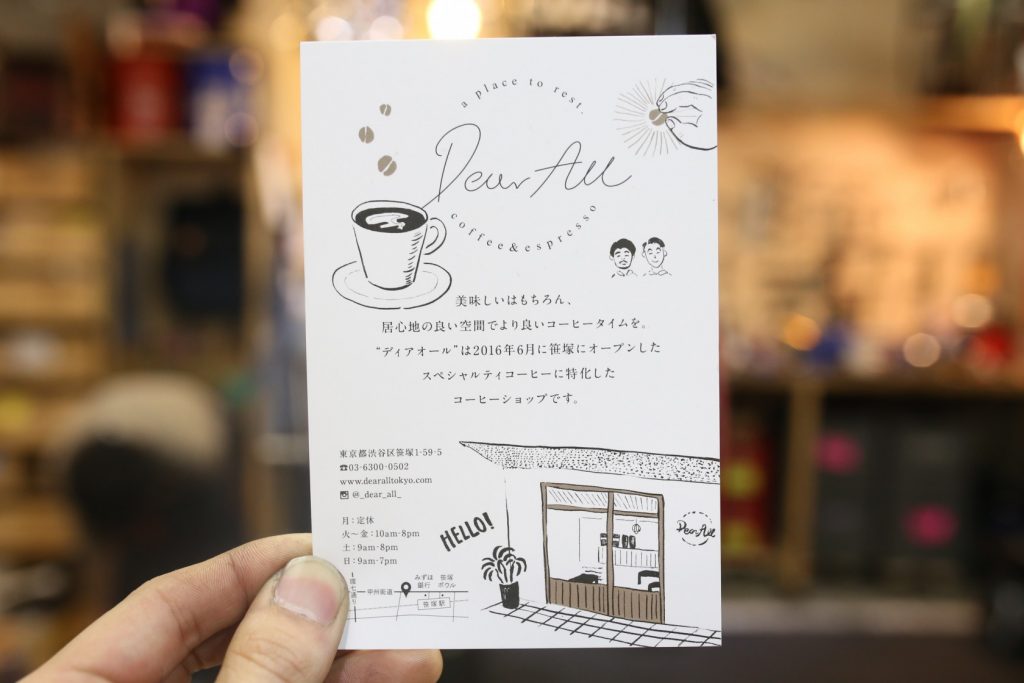 a place to rest.
Dear All
coffee&espresso
美味しいはもちろん、
居心地の良い空間でより良いコーヒータイムを。
“ディアオール”は2016年6月に笹塚にオープンした
スペシャルティコーヒーに特化した
コーヒーショップです。
東京都渋谷区笹塚1-59-5
☎03-6300-0502
www.dearalltokyo.com
@_dear_all_
月：定休
火〜金：10am-8pm
土：9am-8pm
日：9am-7pm
HELLO!
Dear All
みずほ
銀行
笹塚
ボウル
甲州街道
笹塚駅